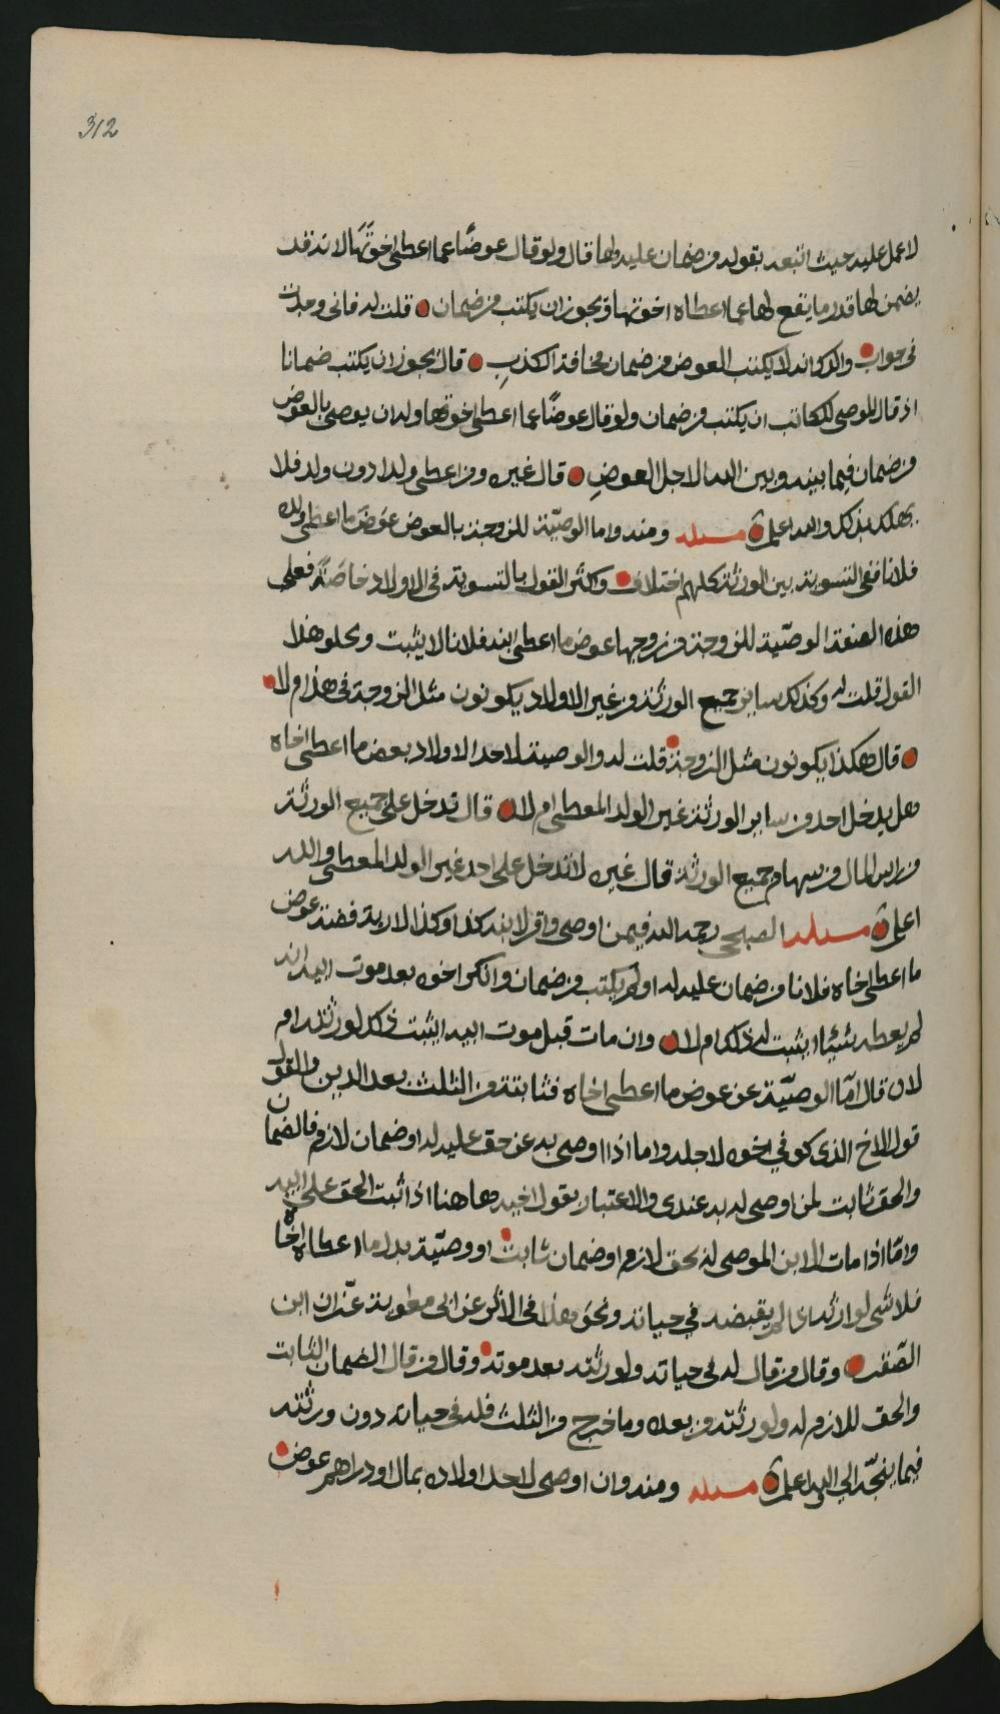 312
لا عمل عليه حيث اتبعه بقوله من ضمان عليه لها قال ولو قال عوضًا عما اعطى اخوتَهَا لانه قد
يضمن لها قدر ما يقع لها عما اعطاه اخوتها ويجوز ان يكتب من ضمان قلت له فاني وجدت
في جواب والدك انه لا يكتب العوض من ضمان مخافة الكذبِ قال يجوز ان يكتب ضمانا
اذ قال الموصي للكاتب ان يكتب من ضمان ولو قال عوضًا عما اعطى اخوتها وله ان يوصي بالعوض
من ضمان فيما بينه وبين الله لاجل العوضِ قال غيره ومن اعطى ولدا دون ولد فلا
يهلك بذلك والله اعلم مسئله ومنه واما الوصيّة للزوجة بالعوض عوضَ ما اعطى ولده
فلانا ففي التسوية بين الورثة كلهم اختلاف واكثر القول بالتسوية في الاولاد خاصَةً فعلى
هذه الصفة الوصيّة للزوجة من زوجها عوض ما اعطى ابنه فلانا لا يثبت وعلى هذا
القول قلت له وكذلك ساير جميع الورثة من غير الاولاد يكونون مثل الزوجة في هذا ام لا
قال هكذا يكونون مثل الزوجة قلت له والوصية لاحد الاولاد بعوض ما اعطى اخاه
هل يدخل احد من ساير الورثة غير الولد المعطى ام لا قال تدخل على جميع الورثة
من راس المال من سهام جميع الورثة قال غيره لا تدخل على احد غير الولد المعطى والله
اعلم مسئله الصبحي رحمه الله فيمن اوصى واقر لابنه كذا وكذا لارية فضة عوض
ما اعطى اخاه فلانا من ضمان عليه له او لم يكتب من ضمان وانكر اخوه بعد موت ابيه انه
لم يعطه شيئا ايثبت له ذلك ام لا وان مات قبل موت ابيه ايثبت ذلك لورثته ام
لا قال امّا الوصيّة عن عوض ما اعطى اخاه فثابتة من الثلث بعد الدين والقول
قول الاخ الذي كوفي اخوه لاجله واما اذا اوصى به عن حق عليه له او ضمان لازم فالضمان
والحق ثابت لمن اوصى له به عندي والاعتبار بقول اخيه هاهنا اذا ثبت الحق على ابيه
وامّا اذا مات الابن الموصى له بحق لازم او ضمان ثابت او وصيّة بدل ما اعطاه اخاه
فلا شي لوارثه اذا لم يقبضه في حياته ونحو هذا في الاثر عن ابي معوية عزّان ابن
الصّقر وقال من قال له في حياته ولورثته بعد موته وقال من قال الضمان الثابت
والحق اللازم له ولورثته من بعده وما خرج من الثلث فله في حياته دون ورثته
فيما يتجّه الي والله اعلم مسئله ومنه وان اوصى لاحد اولاده بمال او دراهم عوض